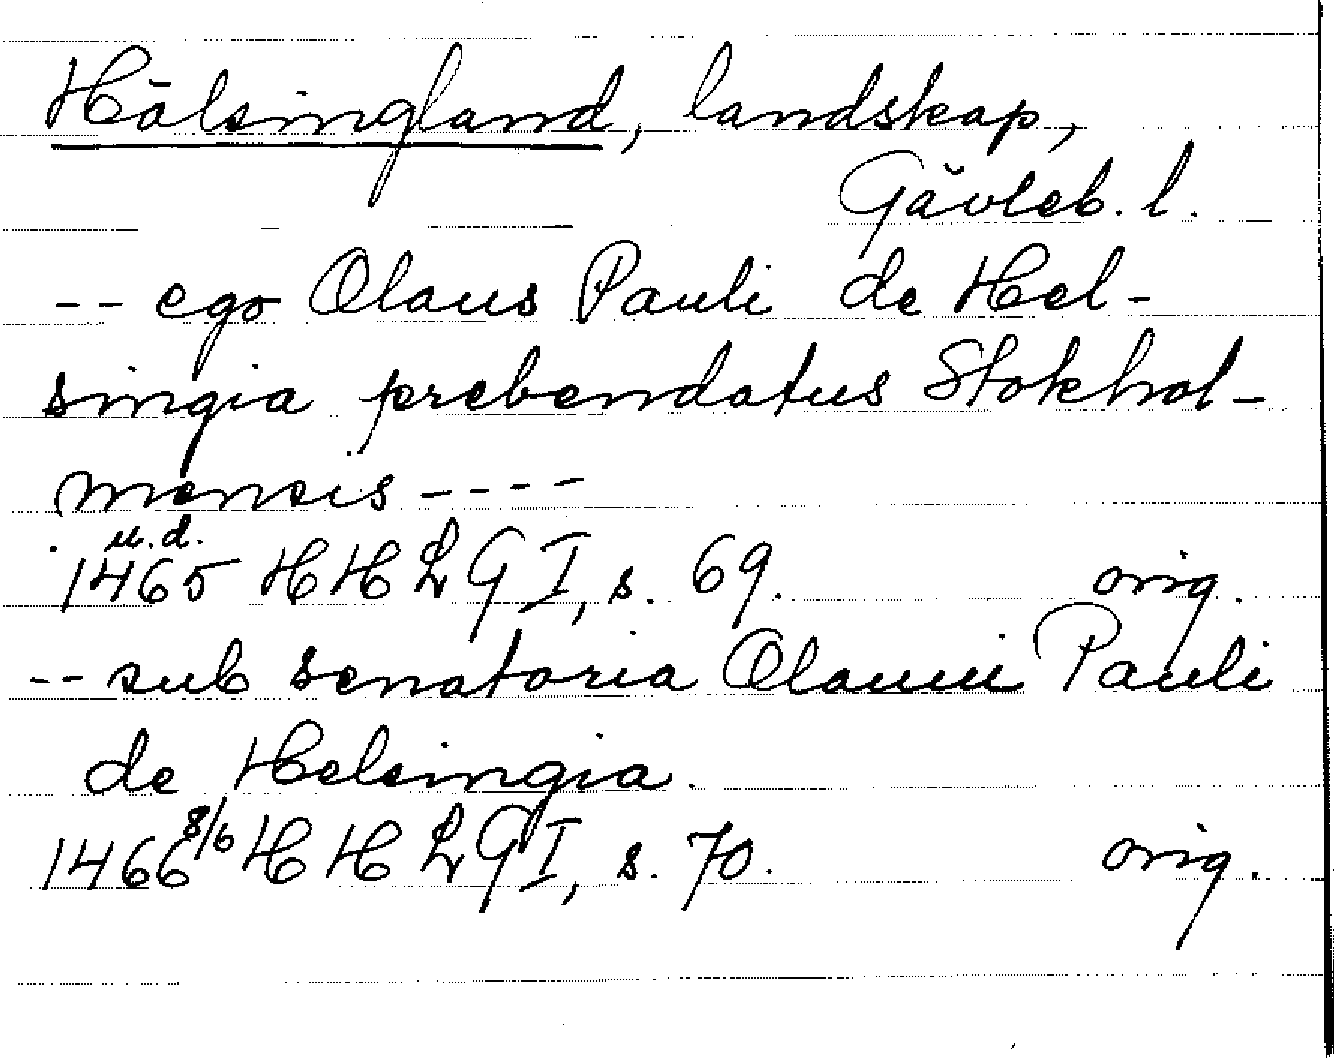 Hälsingland, landskap,
Gävleb. l.
-- ego Olaus Pauli de Hel-
singia prebendatus Stokhol-
mensis ----
u.d.
1465 HHLG I, s. 69. orig.
-- sub senatoria Olauui Pauli
de Helsingia.
1466 8/6 HHLG I, s. 70. orig.